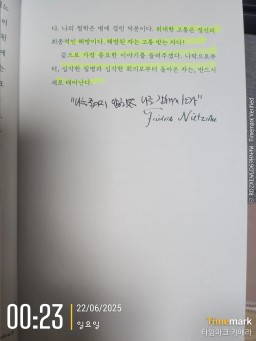 다. 나의 철학은 병에 걸린 덕분이다. 위대한 고통은 정신의
최종적인 해방이다. 해방된 자는 고통 받는 자다!
끝으로 가장 중요한 이야기를 들려주겠다. 나락으로부
터, 심각한 질병과 심각한 회의로부터 돌아온 자는, 반드시
새로 태어난다.
Friedrich Nietzsche
00:23
22/06/2025
일요일
Timemark
타임마크 카메라
Timemark Verified